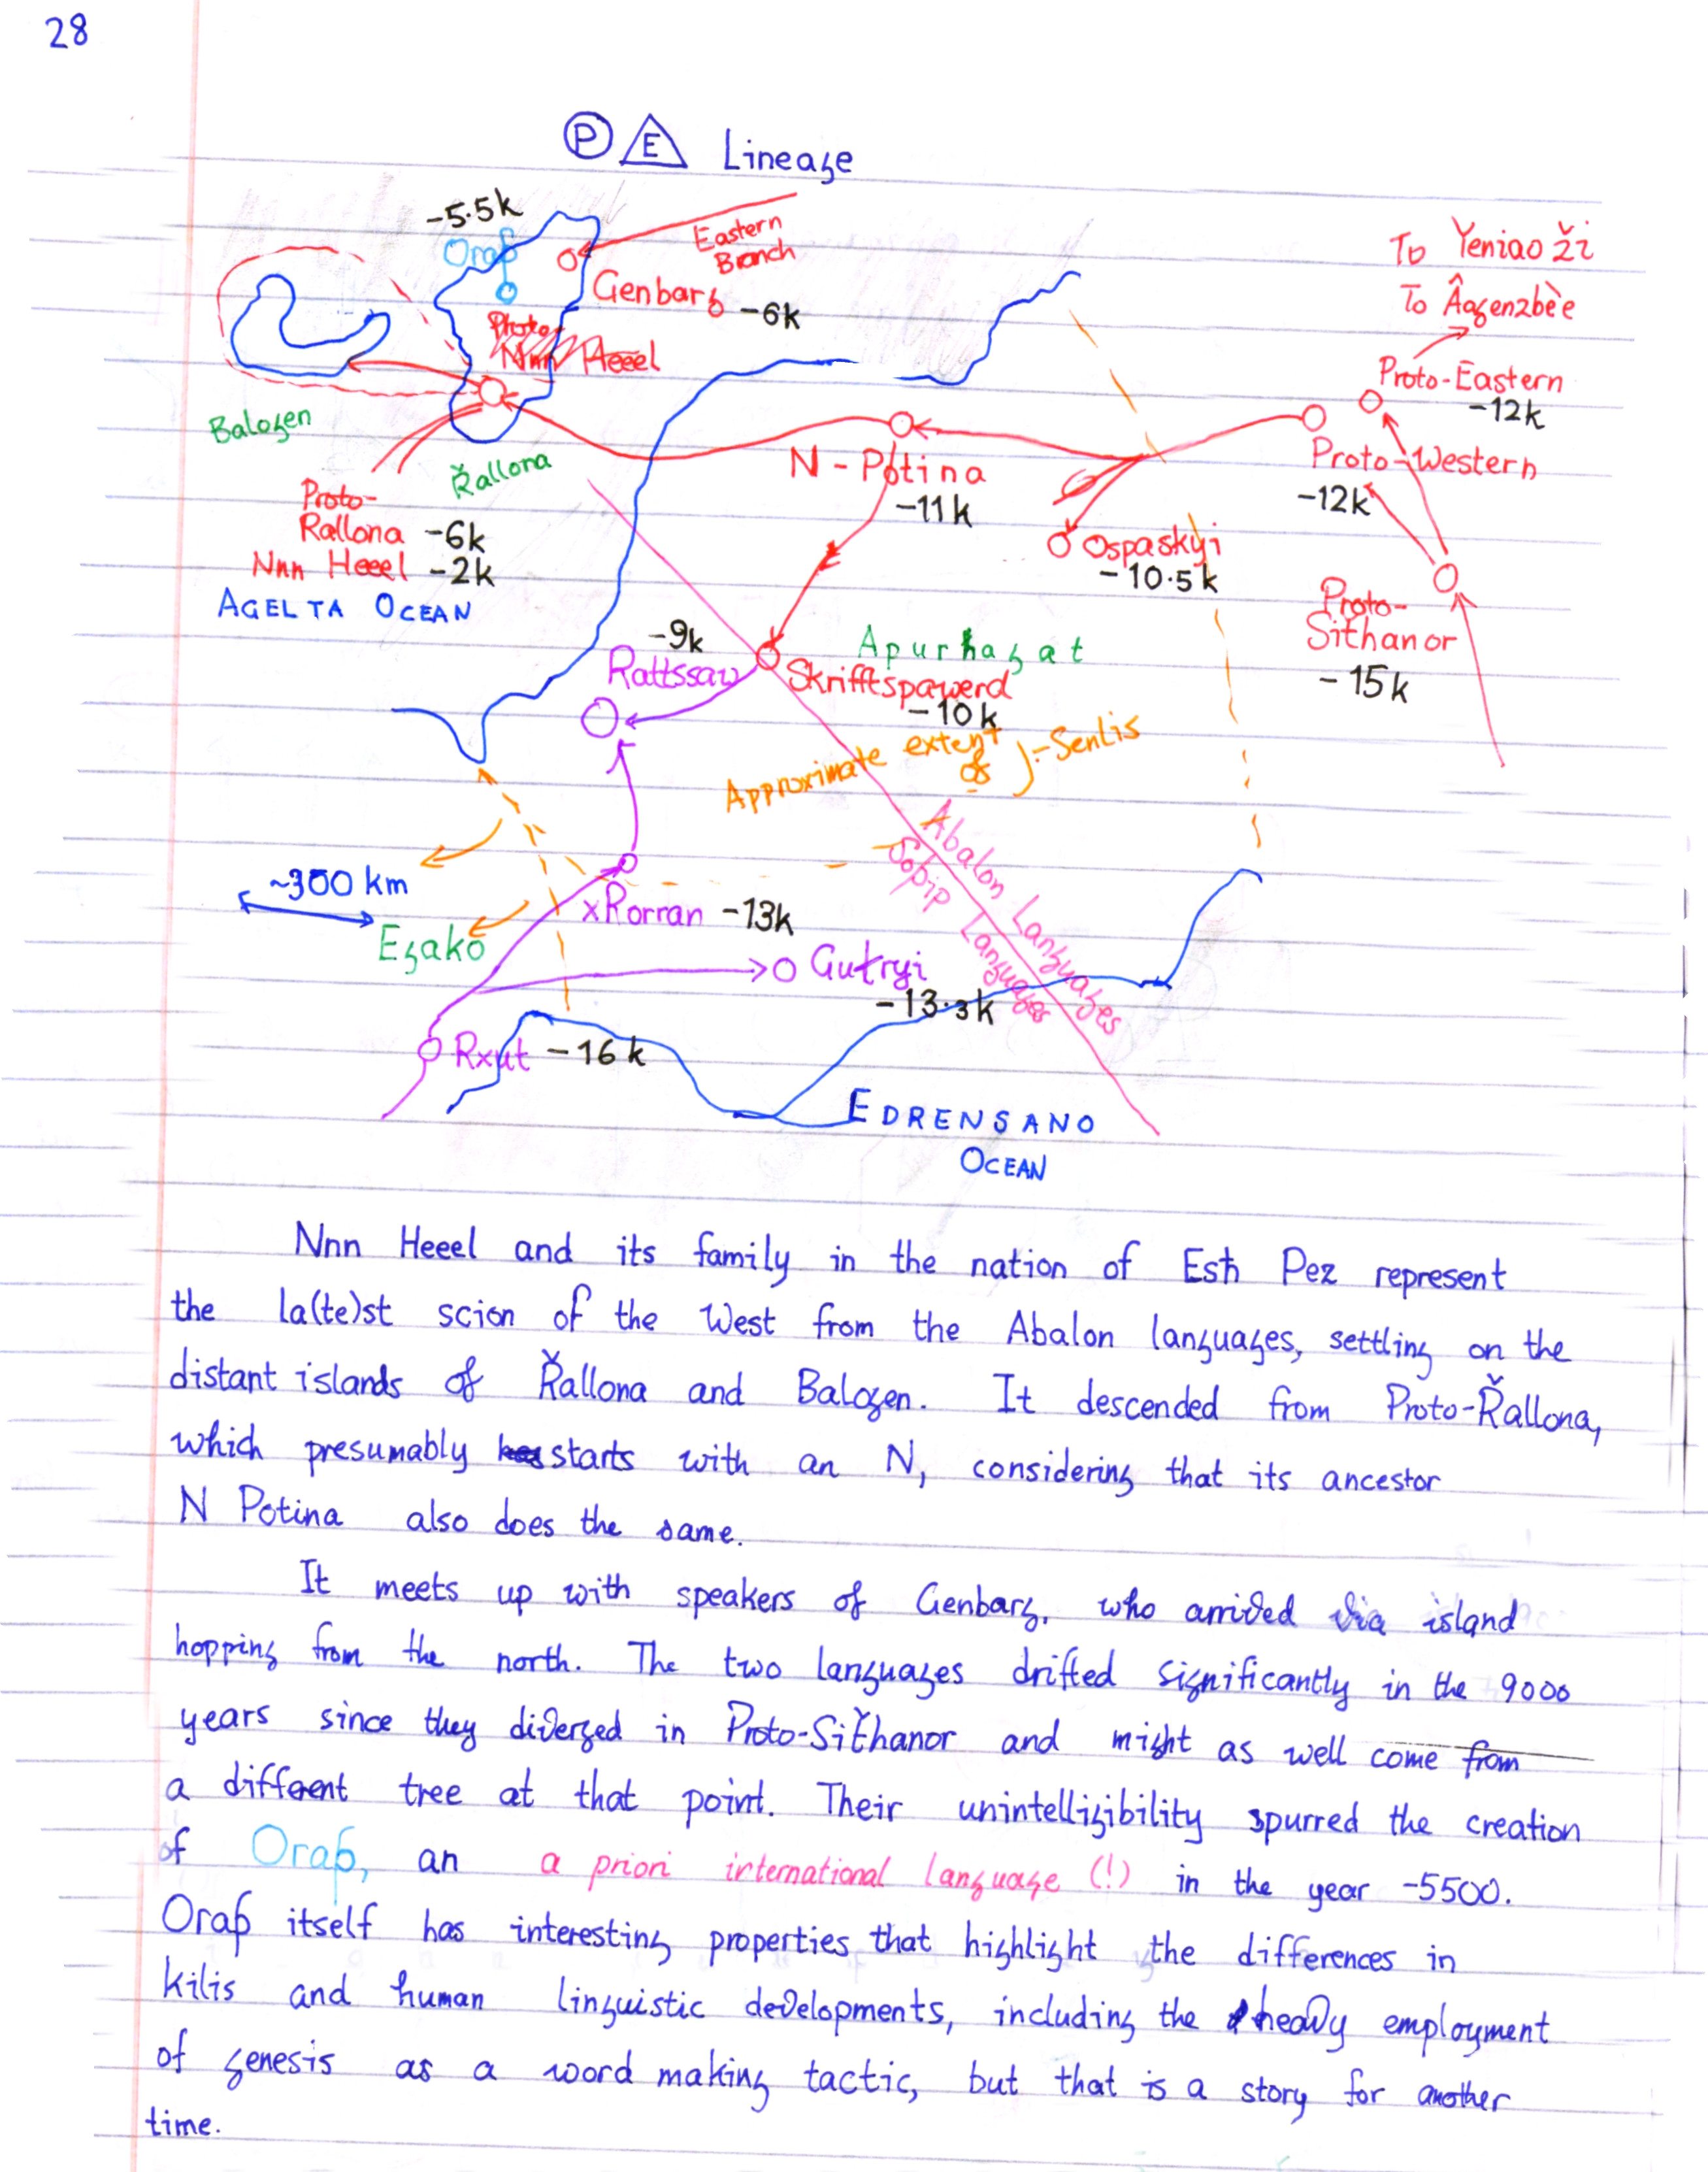 28
P E Lineage
-5.5k
Oraþ
Eastern
Branch
Genbarg -6k
To Yeniao Ži
To Âagenzbèe
Proto-Eastern
-12k
Proto-
Nnn Heeel
Balogen
Řallona
N-Potina
-11k
Proto-Western
-12k
Proto-
Rallona -6k
Nnn Heeel -2k
AGELTA OCEAN
Ospaskyi
-10.5k
Proto-
Sithanor
-15k
-9k
Rattssaw
Apurhagat
Skrifftspawerd
-10k
Approximate extent
of }-Senlis
Abalon Languages
Sopip Languages
~300 km
xRorran -13k
Egako
Gutryi
-13.3k
Rxut -16k
EDRENSANO
OCEAN
Nnn Heeel and its family in the nation of Esħ Pez represent
the la(te)st scion of the West from the Abalon languages, settling on the
distant islands of Řallona and Balogen. It descended from Proto-Řallona,
which presumably starts with an N, considering that its ancestor
N Potina also does the same.
It meets up with speakers of Genbarg, who arrived via island
hopping from the north. The two languages drifted significantly in the 9000
years since they diverged in Proto-Siťhanor and might as well come from
a different tree at that point. Their unintelligibility spurred the creation
of Oraþ, an a priori international language (!) in the year -5500.
Oraþ itself has interesting properties that highlight the differences in
kilis and human linguistic developments, including the heavy employment
of genesis as a word making tactic, but that is a story for another
time.